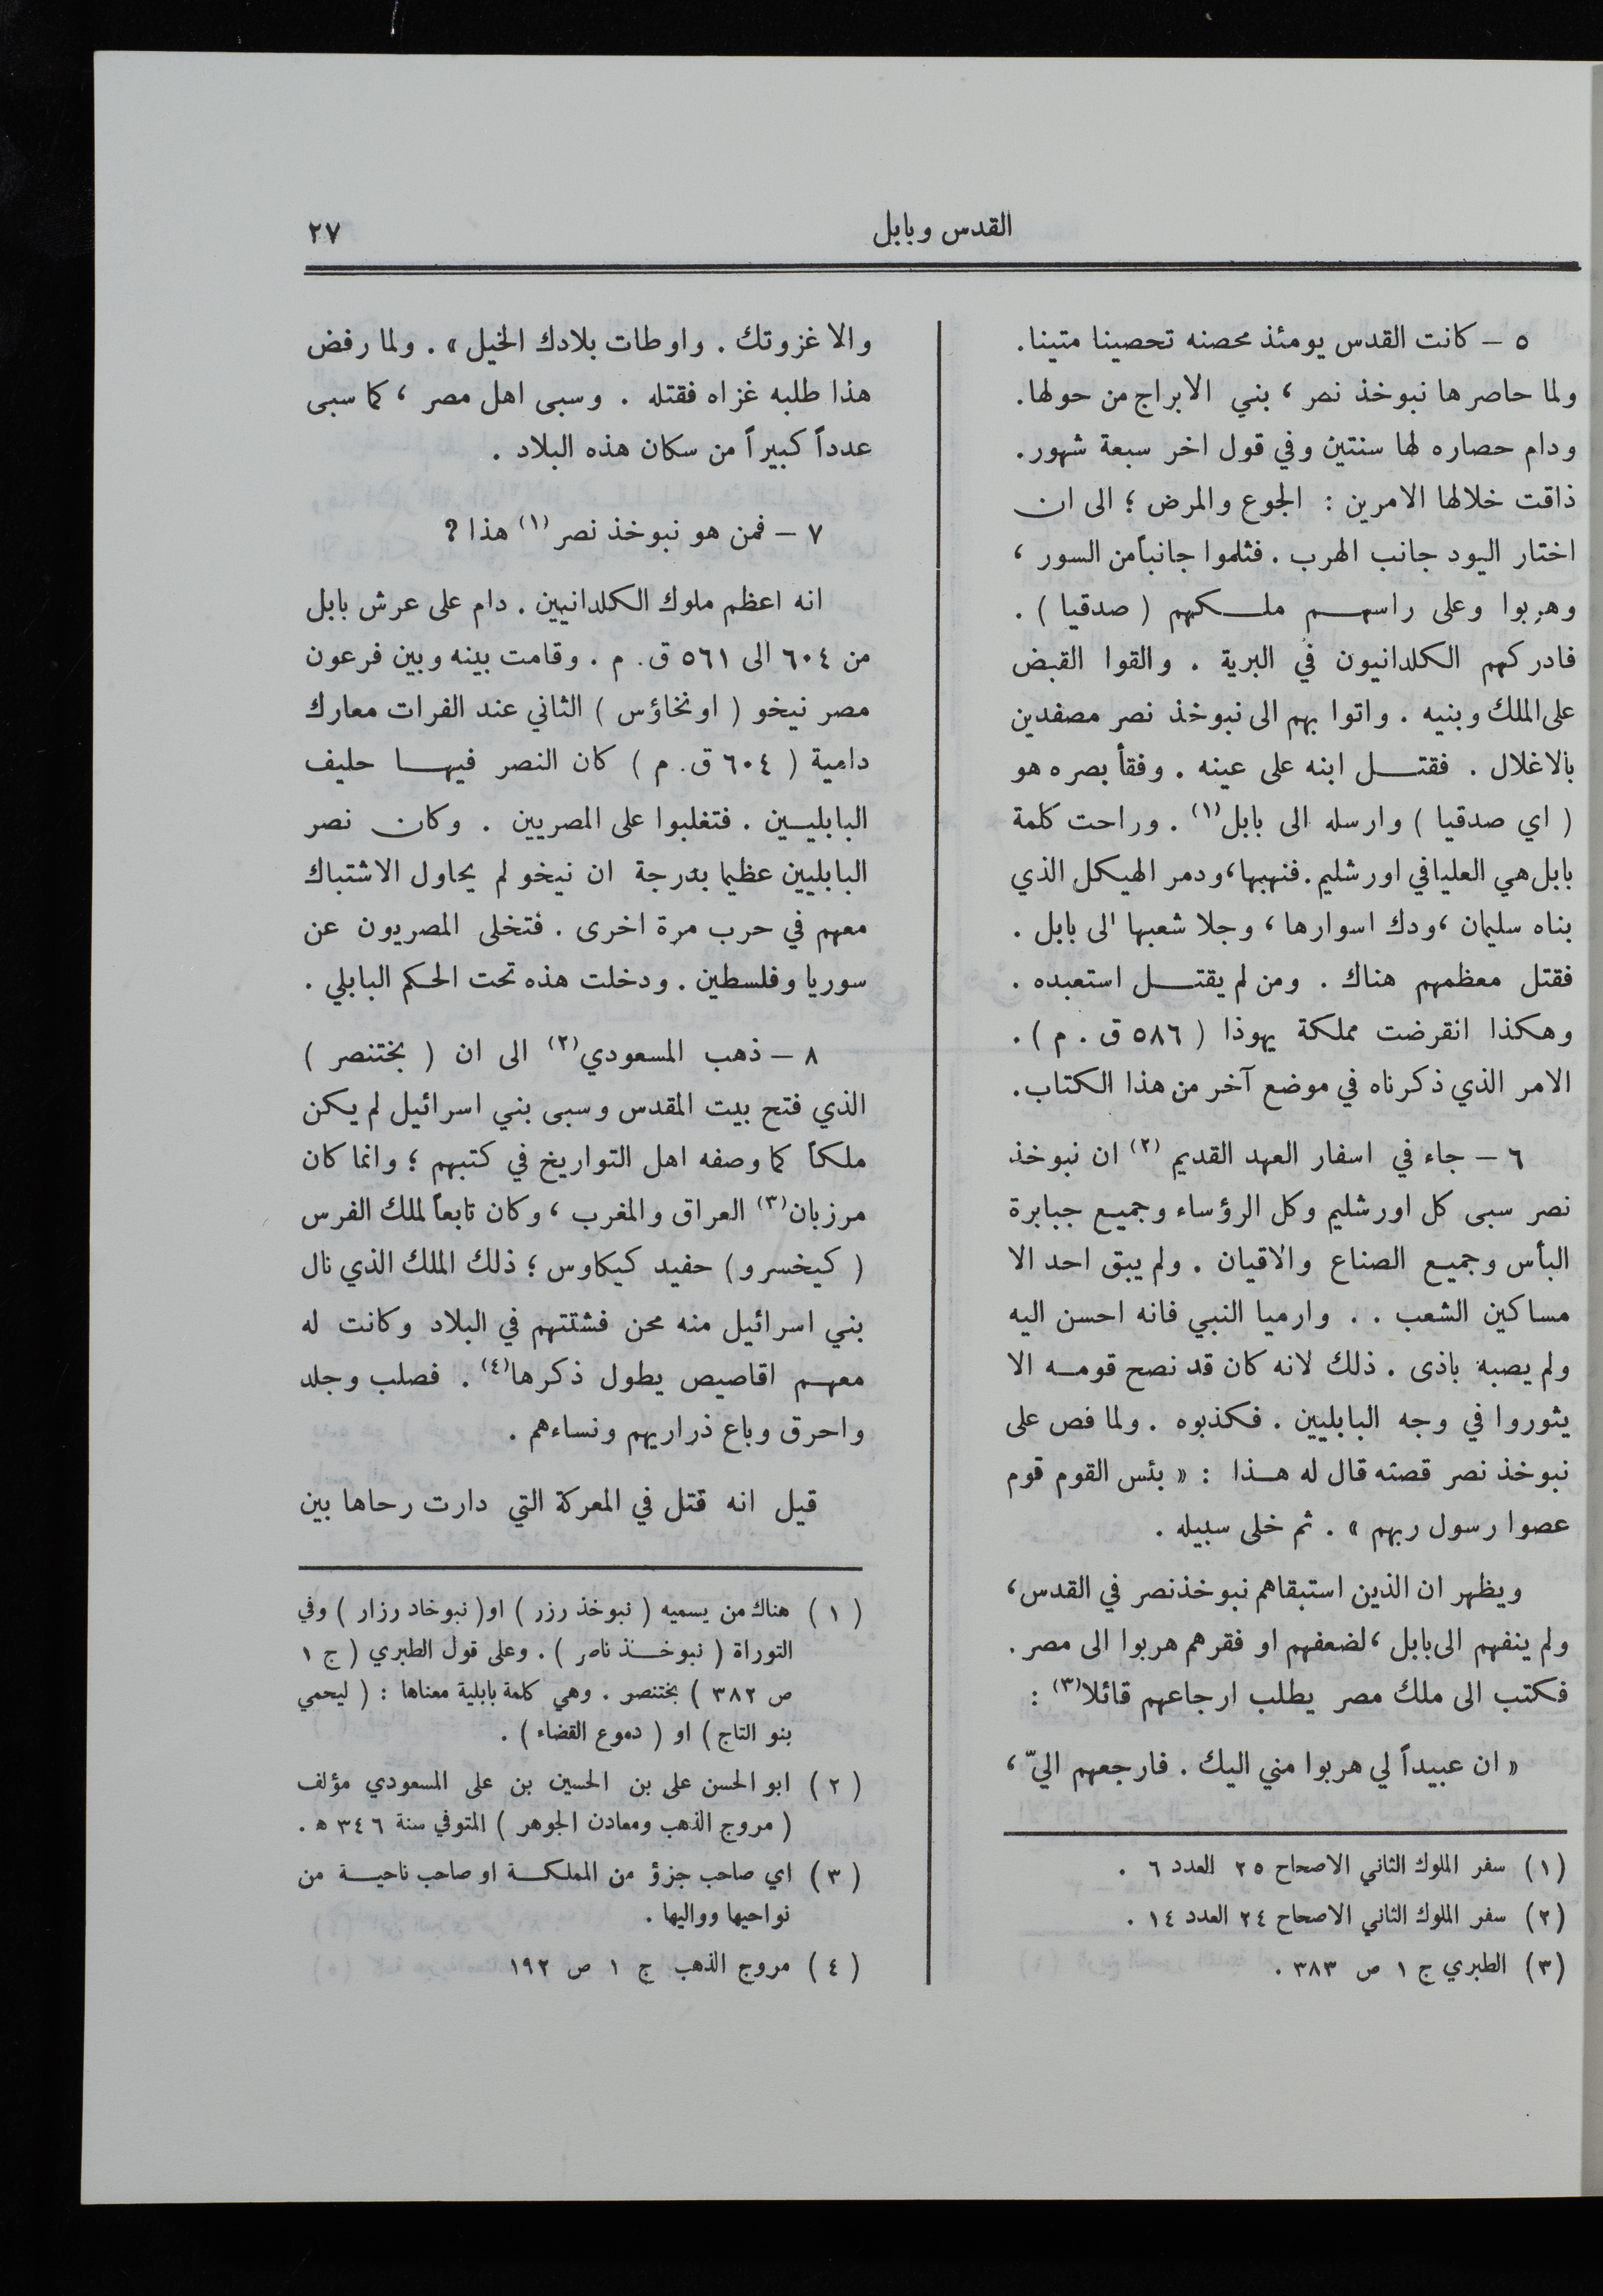 القدس وبابل
٢٧
٥ – كانت القدس يومئذ محصنه تحصينا متينا.
ولما حاصرها نبوخذ نصر ، بني الابراج من حولها.
ودام حصاره لها سنتين وفي قول اخر سبعة شهور.
ذاقت خلالها الامرين : الجوع والمرض ؛ الى ان
اختار اليود جانب الهرب . فثلموا جانباً من السور ،
وهربوا وعلى راسهم ملكهم ( صدقيا ) .
فادركهم الكلدانيون في البرية . والقوا القبض
على الملك وبنيه . واتوا بهم الى نبوخذ نصر مصفدين
بالاغلال . فقتل ابنه على عينه . وفقأ بصره هو
( اي صدقيا ) وارسله الى بابل(١) . وراحت كلمة
بابل هي العليا في اورشليم . فنهبها، ودمر الهيكل الذي
بناه سليمان ، ودك اسوارها ، وجلا شعبها الى بابل .
فقتل معظمهم هناك . ومن لم يقتل استعبده .
وهكذا انقرضت مملكة يهوذا ( ٥٨٦ ق . م ) .
الامر الذي ذكرناه في موضع آخر من هذا الكتاب.
٦ – جاء في اسفار العهد القديم (٢) ان نبوخذ
نصر سبى كل اورشليم وكل الرؤساء وجميع جبابرة
البأس وجميع الصناع والاقيان . ولم يبق احد الا
مساكين الشعب . . وارميا النبي فانه احسن اليه
ولم يصبه باذى . ذلك لانه كان قد نصح قومه الا
يثوروا في وجه البابليين . فكذبوه . ولما فص على
نبوخذ نصر قصته قال له هذا : « بئس القوم قوم
عصوا رسول ربهم » . ثم خلى سبيله .
ويظهر ان الذين استبقاهم نبوخذنصر في القدس،
ولم ينفهم الى بابل ، لضعفهم او فقرهم هربوا الى مصر .
فكتب الى ملك مصر يطلب ارجاعهم قائلا(٣) :
« ان عبيداً لي هربوا مني اليك . فارجعهم اليّ ،
(١) سفر الملوك الثاني الاصحاح ٢٥ العدد ٦ .
(٢) سفر الملوك الثاني الاصحاح ٢٤ العدد ١٤ .
(٣) الطبري ج ١ ص ٣٨٣ .
والا غزوتك . واوطات بلادك الخيل » . ولما رفض
هذا طلبه غزاه فقتله . وسبى اهل مصر ، كما سبى
عدداً كبيراً من سكان هذه البلاد .
٧ – فمن هو نبوخذ نصر (١) هذا ؟
انه اعظم ملوك الكلدانيين . دام على عرش بابل
من ٦٠٤ الى ٥٦١ ق. م . وقامت بينه وبين فرعون
مصر نيخو ( او نخاؤس ) الثاني عند الفرات معارك
دامية ( ٦٠٤ ق. م ) كان النصر فيها حليف
البابليين . فتغلبوا على المصريين . وكان نصر
البابليين عظيما بدرجة ان نيخو لم يحاول الاشتباك
معهم في حرب مرة اخرى . فتخلى المصريون عن
سوريا وفلسطين . ودخلت هذه تحت الحكم البابلي .
٨ – ذهب المسعودي(٢) الى ان ( بختنصر )
الذي فتح بيت المقدس وسبى بني اسرائيل لم يكن
ملكاً كما وصفه اهل التواريخ في كتبهم ؛ وانما كان
مرزبان(٣) العراق والمغرب ، وكان تابعاً لملك الفرس
( كيخسرو ) حفيد كيكاوس ؛ ذلك الملك الذي نال
بني اسرائيل منه محن فشتتهم في البلاد وكانت له
معهم اقاصيص يطول ذكرها(٤) . فصلب وجلد
واحرق وباع ذراريهم ونساءهم .
قيل انه قتل في المعركة التي دارت رحاها بين
( ١ ) هناك من يسميه ( نبوخذ رزر ) او ( نبوخاد رزار ) وفي
التوراة ( نبوخذ ناصر ) . وعلى قول الطبري ( ج ١
ص ٣٨٢ ) بختنصر . وهي كلمة بابلية معناها : ( ليحمي
بنو التاج ) او ( دموع القضاء ) .
( ٢ ) ابو الحسن على بن الحسين بن على المسعودي مؤلف
( مروج الذهب ومعادن الجوهر ) المتوفي سنة ٣٤٦ ه .
( ٣ ) اي صاحب جزؤ من المملكة او صاحب ناحية من
نواحيها وواليها .
( ٤ ) مروج الذهب ج ١ ص ١٩٢